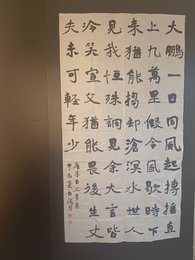 大鵬一日同風起摶搖直
上九萬里假令風歇時下
来猶能却滄溟水世人
見我恒殊調見余大言皆
冷笑宣父猶能畏後生丈
夫未可輕年少
唐李白上李邕
甲辰夏